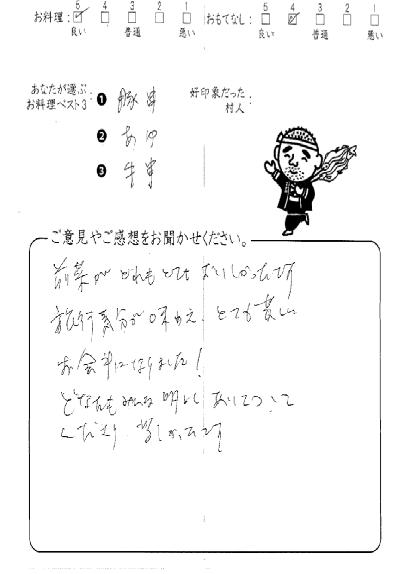 お料理: 5 4 3 2 1
良い 普通 悪い
おもてなし: 5 4 3 2 1
良い 普通 悪い
あなたが選ぶ
お料理ベスト3:
❶ 豚串
❷ あゆ
❸ 牛串
好印象だった
村人:
ご意見やご感想をお聞かせください。
前菜がどれもとてもおいしかったです
旅行気分が味わえ、とても楽しい
お食事になりました!
どなたもみんな明るく
くださり 楽しかったです